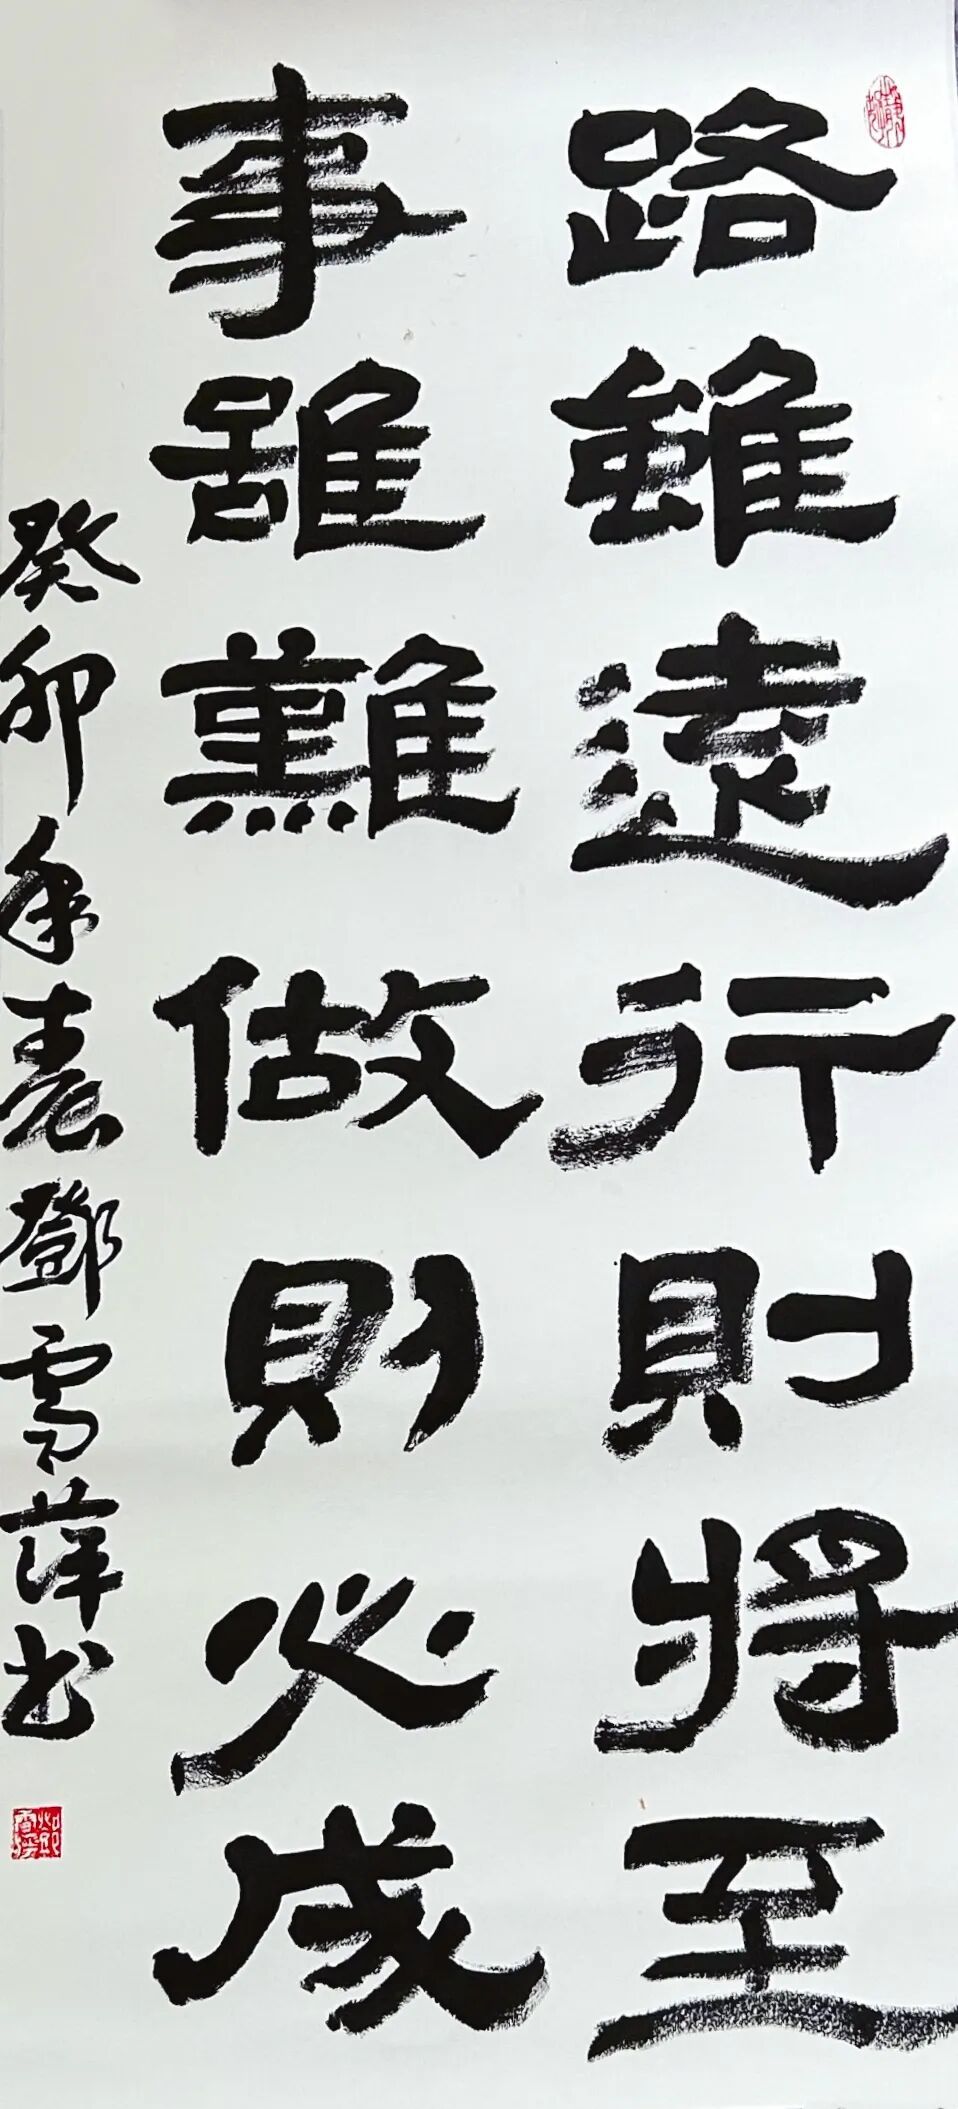 路雖遠行則將至
事雖難做則必成
癸卯年春鄧雪萍书
鄧雪萍